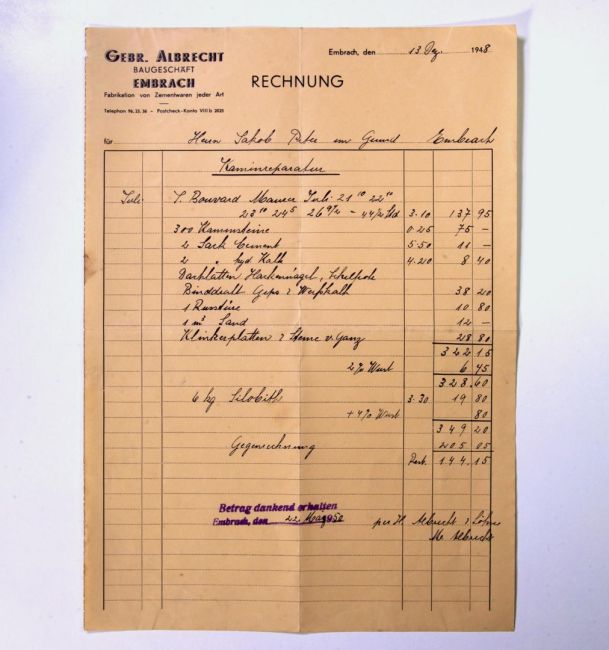 GEBR. ALBRECHT
BAUGESCHÄFT
EMBRACH
Fabrikation von Zementwaren jeder Art
Telephon 96.23.36 – Postcheck-Konto VIII b 2025
Embrach, den 13 Dez. 1948
RECHNUNG
für Herrn Jakob Peter im Grund Embrach
Kaminreparatur
Juli. S. Bouvard Maurer Juli 21 10 22 10
23 10 24 5 26 9 1/2 – 44 1/2 Std. 3.10 137 95
300 Kaminsteine 0.25 75 –
2 Sack Cement 5.50 11 –
2 " hyd. Kalk 4.20 8 40
Dachlatten Hackennägel,
Binddraht Gips & Weisskalk 38 20
1 Russtüre 10 80
1 m³ Sand 12 –
Klinkerplatten & Steine v. Ganz 28 80
322 15
2% Wust 6 45
328.60
6 kg Silobith 3.30 19 80
+ 4% Wust 80
349 20
Gegenrechnung 205 05
Rest. 144.15
Betrag dankend erhalten
Embrach, den 22. März 1950 per H. Albrecht & Söhne
Albrecht